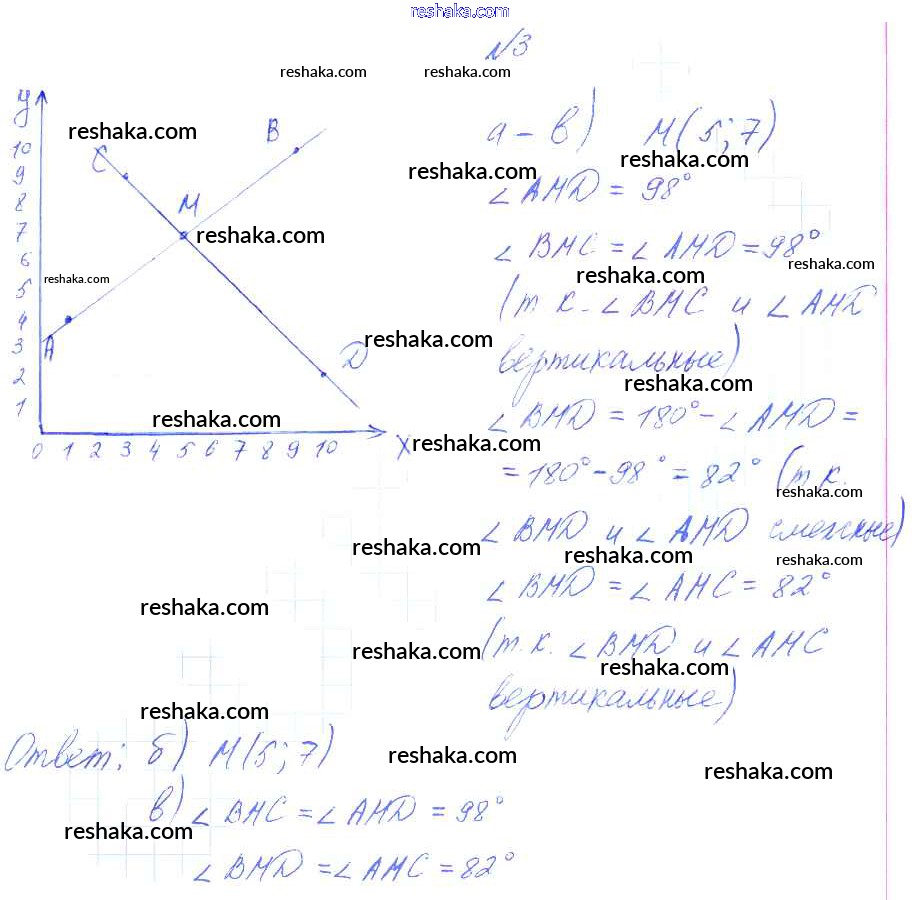 reshaka.com
№3
reshaka.com reshaka.com
y
10
9
8
7
6
5
4
3
2
1
0 1 2 3 4 5 6 7 8 9 10 X
C
B
M
A
D
reshaka.com
reshaka.com
reshaka.com
reshaka.com
reshaka.com
reshaka.com
а – в) M(5; 7)
reshaka.com
reshaka.com
∠AMD = 98°
∠BMC = ∠AMD = 98°
reshaka.com
reshaka.com
(т.к. ∠BMC и ∠AMD
вертикальные)
reshaka.com
∠BMD = 180° – ∠AMD =
= 180° – 98° = 82° (т.к.
reshaka.com
∠BMD и ∠AMD смежные)
reshaka.com
reshaka.com
reshaka.com
∠BMD = ∠AMC = 82°
reshaka.com
(т.к. ∠BMD и ∠AMC
reshaka.com
reshaka.com
вертикальные)
reshaka.com
Ответ: б) M(5; 7)
reshaka.com
reshaka.com
в) ∠BMC = ∠AMD = 98°
reshaka.com
∠BMD = ∠AMC = 82°